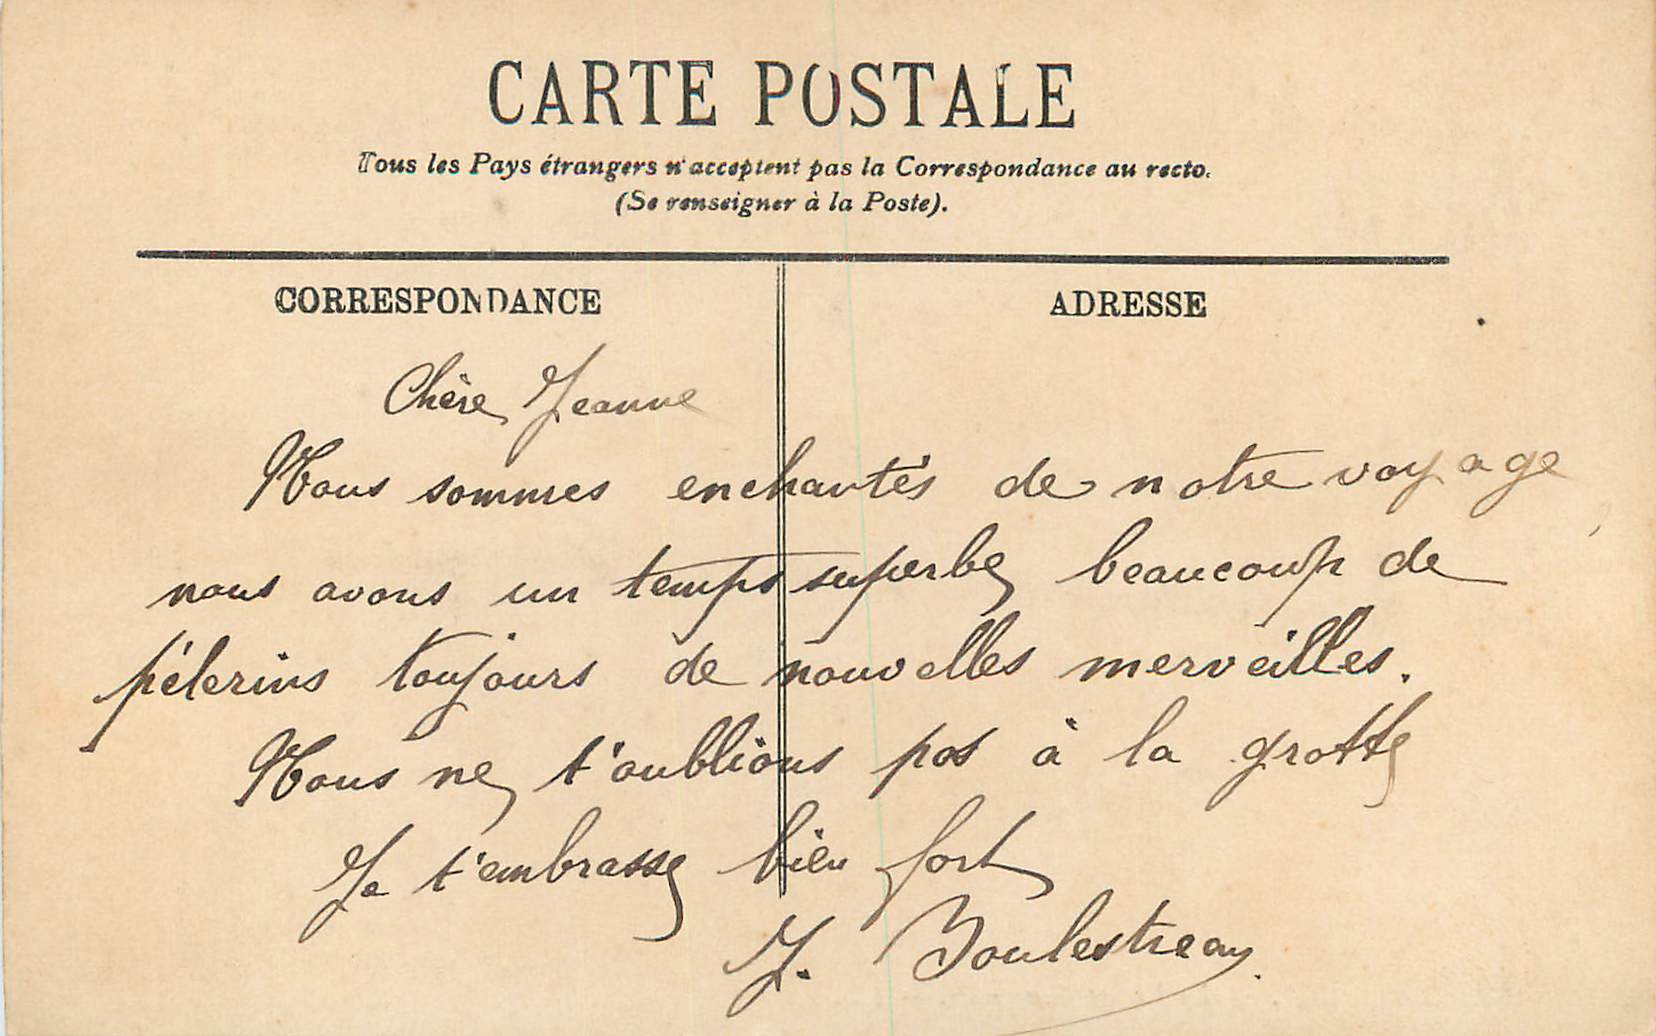 CARTE POSTALE
Tous les Pays étrangers n'acceptent pas la Correspondance au recto.
(Se renseigner à la Poste).
CORRESPONDANCE
ADRESSE
Chère Jeanne
Nous sommes enchantés de notre voyage
nous avons un temps superbe beaucoup de
pélerins toujours de nouvelles merveilles.
Nous ne t'oublions pas à la grotte
Je t'embrasse bien fort
J. Boulestreau.